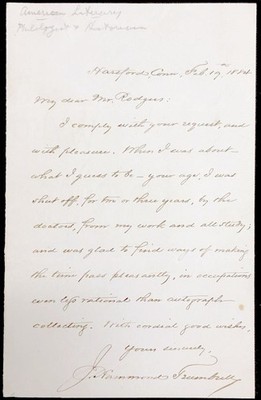 American Literary
Philologist & Historian
Hartford, Conn. Feb 19th 1884.
My dear Mr. Rodgers:
I comply with your request, and
with pleasure. When I was about
what I guess to be – your age, I was
shut off, for two or three years, by the
doctors, from my work and all study;
and was glad to find ways of making
the time pass pleasantly, in occupations
even less rational than autograph-
collecting. With cordial good wishes,
Yours sincerely,
J. Hammond Trumbull